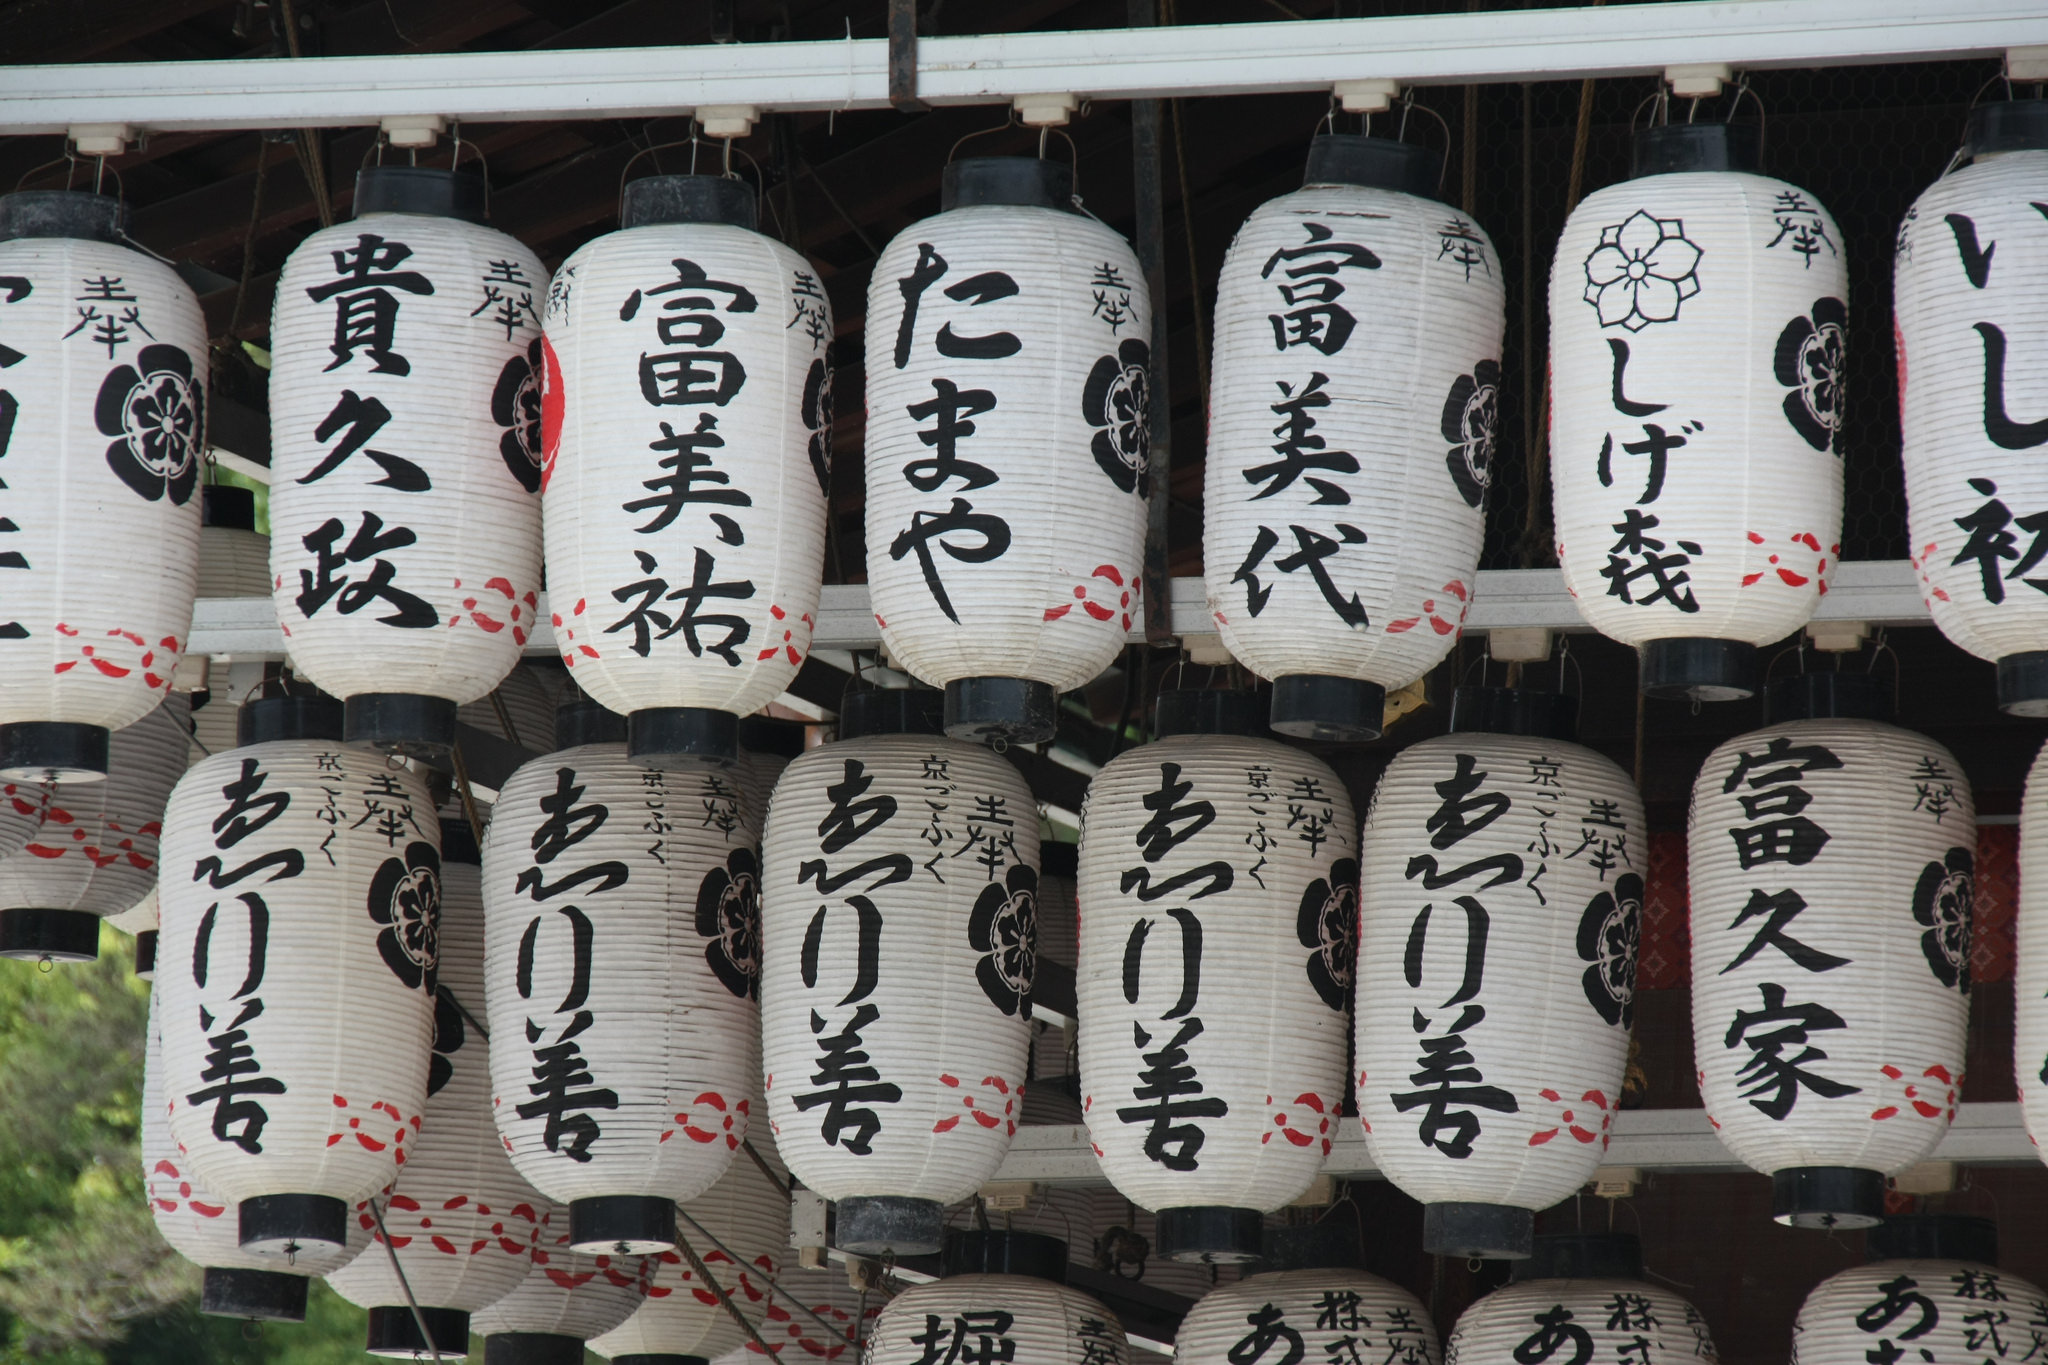 奉
貴久政
奉
富美祐
奉
たまや
奉
富美代
奉
しげ森
奉
いし初
京ごふく
ゑり善
奉
京ごふく
ゑり善
奉
京ごふく
ゑり善
奉
京ごふく
ゑり善
奉
京ごふく
ゑり善
奉
富久家
奉
堀
奉
株式
あ
奉
株式
あ
奉
株式
あ